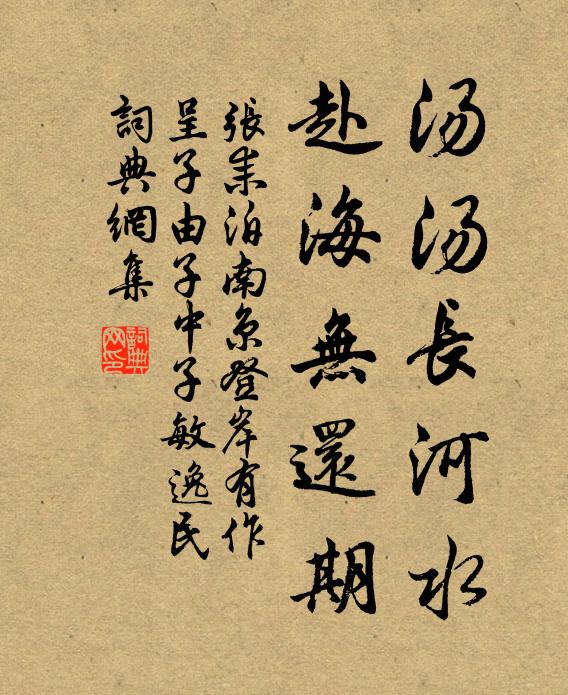 汤汤長河水
赴海無還期
張耒泊南京登岸有作
呈子由子中子敏逸民
詞典網集
詞典网印